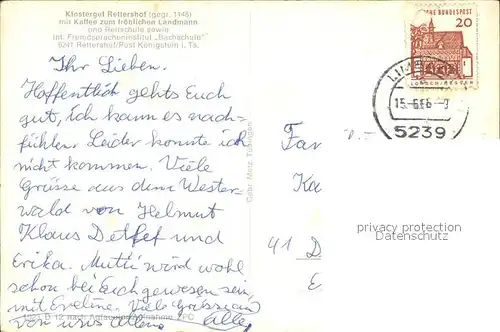 Klostergut Rettershof (gegr. 1146)
mit Kaffee zum fröhlichen Landmann
und Reitschule sowie
Int. Fremdspracheninstitut „Bachschule"
6241 Rettershof/Post Königstein i. Ts.
Ihr Lieben.
Hoffentlich gehts Euch
gut, ich kann es nach-
fühlen. Leider konnte ich
nicht kommen. Viele
Grüsse aus dem Wester-
wald von Helmut
Klaus Detlef und
Erika. Mutti wird wohl
schon bei Euch gewesen sein
mit Eveline. Viele Grüsse
von uns allen. Alle,
Gebr. Metz, Tübingen
DEUTSCHE BUNDESPOST
20
LORSCH/HESSEN
15.
5239
Fa
Ka
41 D
E
privacy protection
Datenschutz